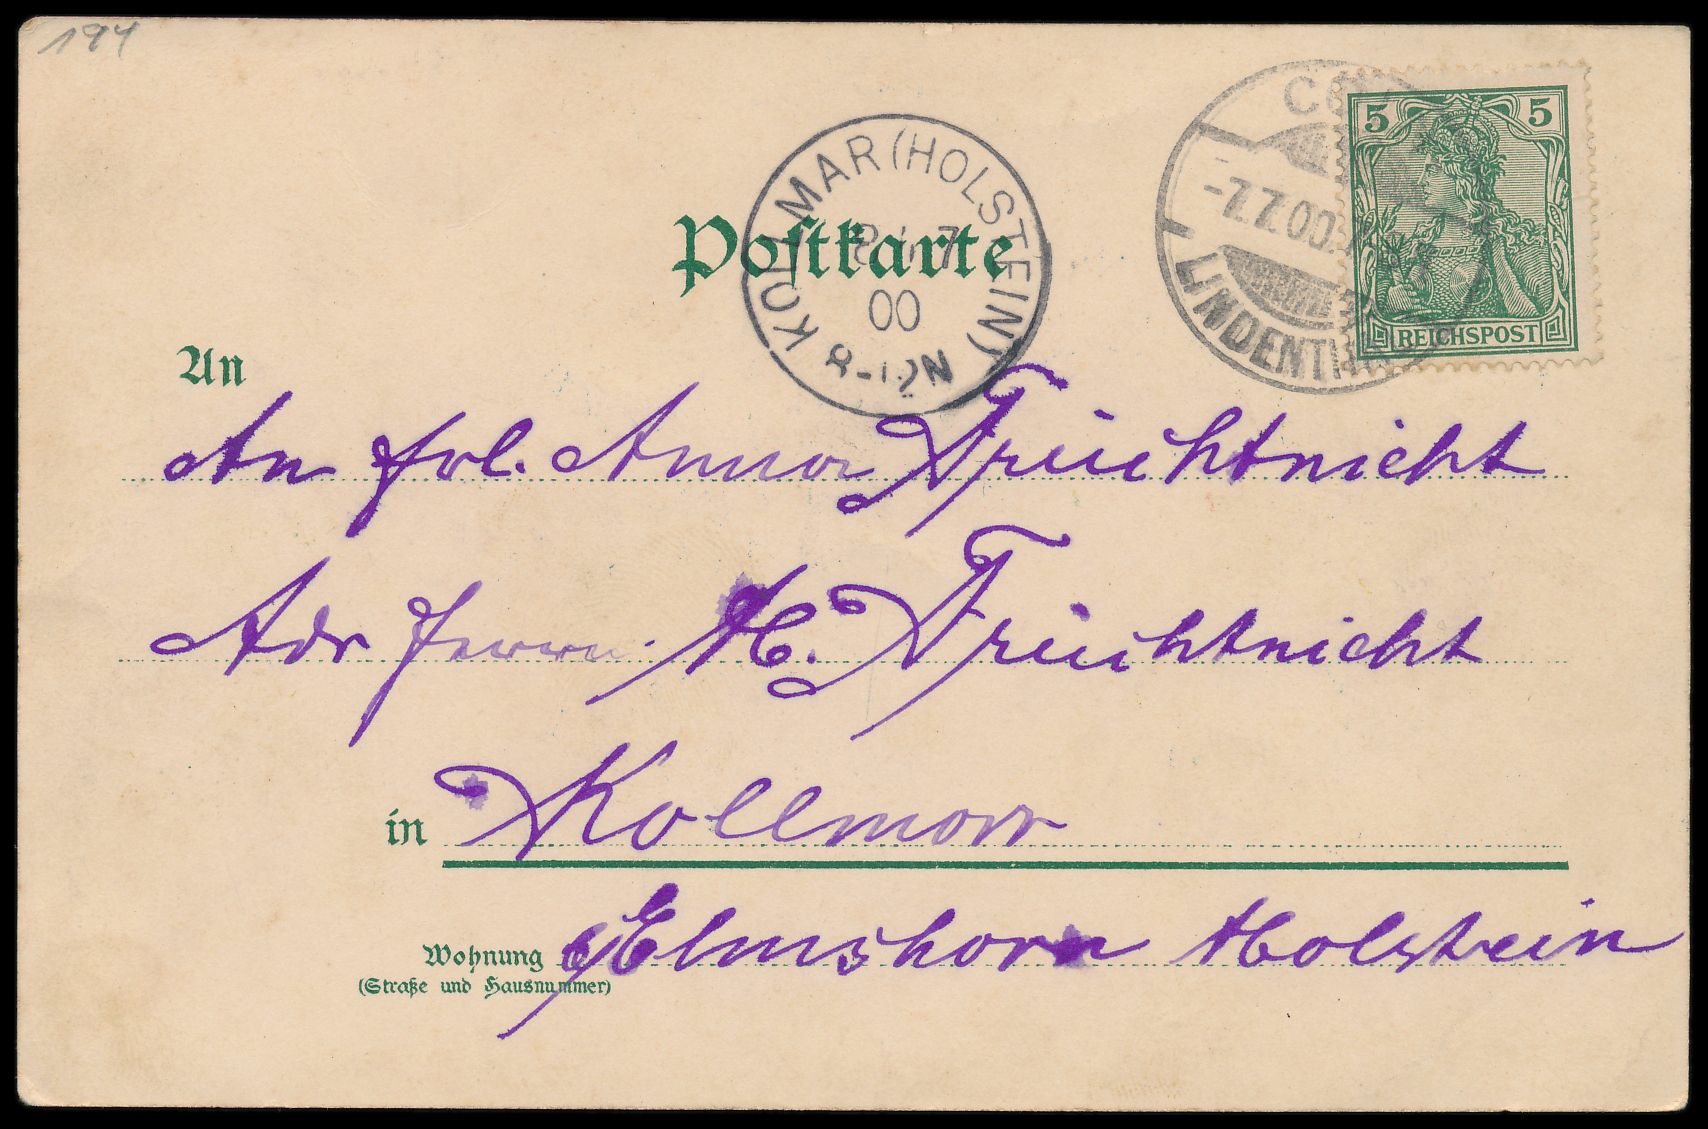 194
KOLLMAR (HOLSTEIN)
8 7
00
8-12N
LINDENTHAL
-7.7.00.
5 5
REICHSPOST
Postkarte
An
An Frl. Anna Früchtnicht
Adr Herrn. H. Früchtnicht
in Kollmar
Elmshorn Holstein
Wohnung
(Straße und Hausnummer)